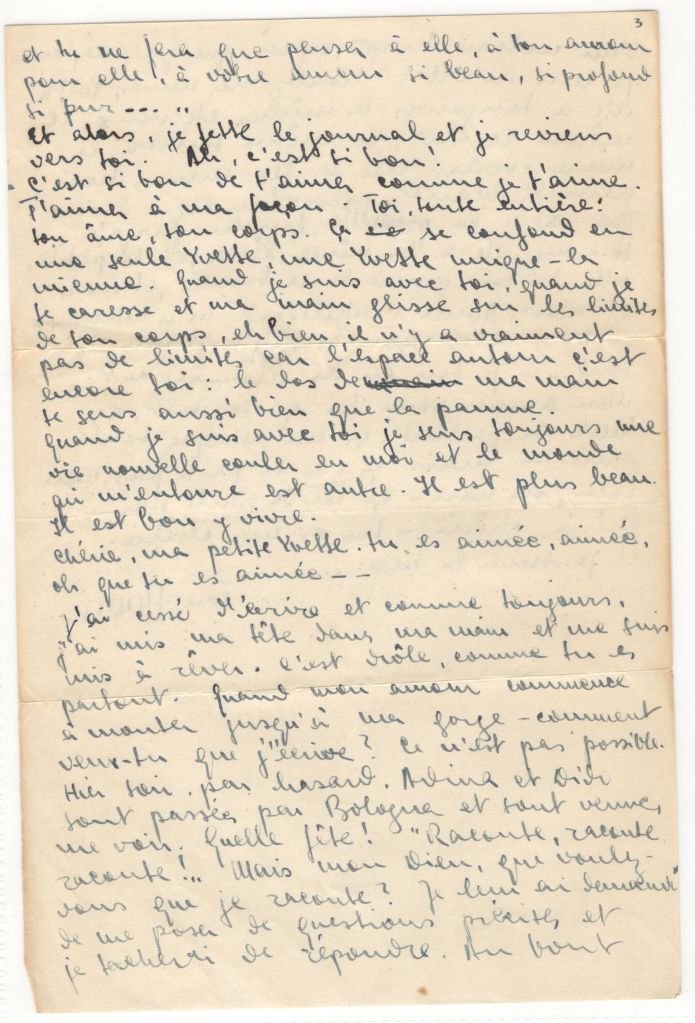 3
et tu ne fera que penser à elle, à ton amour
pour elle, à votre amour si beau, si profond
si pur --- „
Et alors, je jette le journal et je reviens
vers toi. Ah, c'est si bon!
C'est si bon de t'aimer comme je t'aime.
T'aimer à ma façon. Toi, toute entière:
ton âme, ton corps. Ça se confond en
une seule Yvette, une Yvette unique – la
mienne. Quand je suis avec toi, quand je
te caresse et ma main glisse sur les limites
de ton corps, eh bien, il n'y a vraiment
pas de limites car l'espace autour c'est
encore toi: le dos de ma main
te sens aussi bien que la paume.
Quand je suis avec toi je sens toujours une
vie nouvelle couler en moi et le monde
qui m'entoure est autre. Il est plus beau.
Il est bon y vivre.
Chérie, ma petite Yvette. tu es aimée, aimée,
oh que tu es aimée --
J'ai cessé d'écrire et comme toujours,
j'ai mis ma tête dans ma main et me suis
mis à rêver. C'est drôle, comme tu es
partout. Quand mon amour commence
à monter jusqu'à ma gorge – comment
veux-tu que j'écrive? Ce n'est pas possible.
Hier soir, par hasard, Adina et Didi
sont passées par Bologna et sont venues
me voir. Quelle fête! "Raconte, raconte
raconte!„ Mais mon Dieu, que voulez-
vous que je raconte? Je leur ai demandé
de me poser de questions précises et
je tacherai de répondre. Au bout